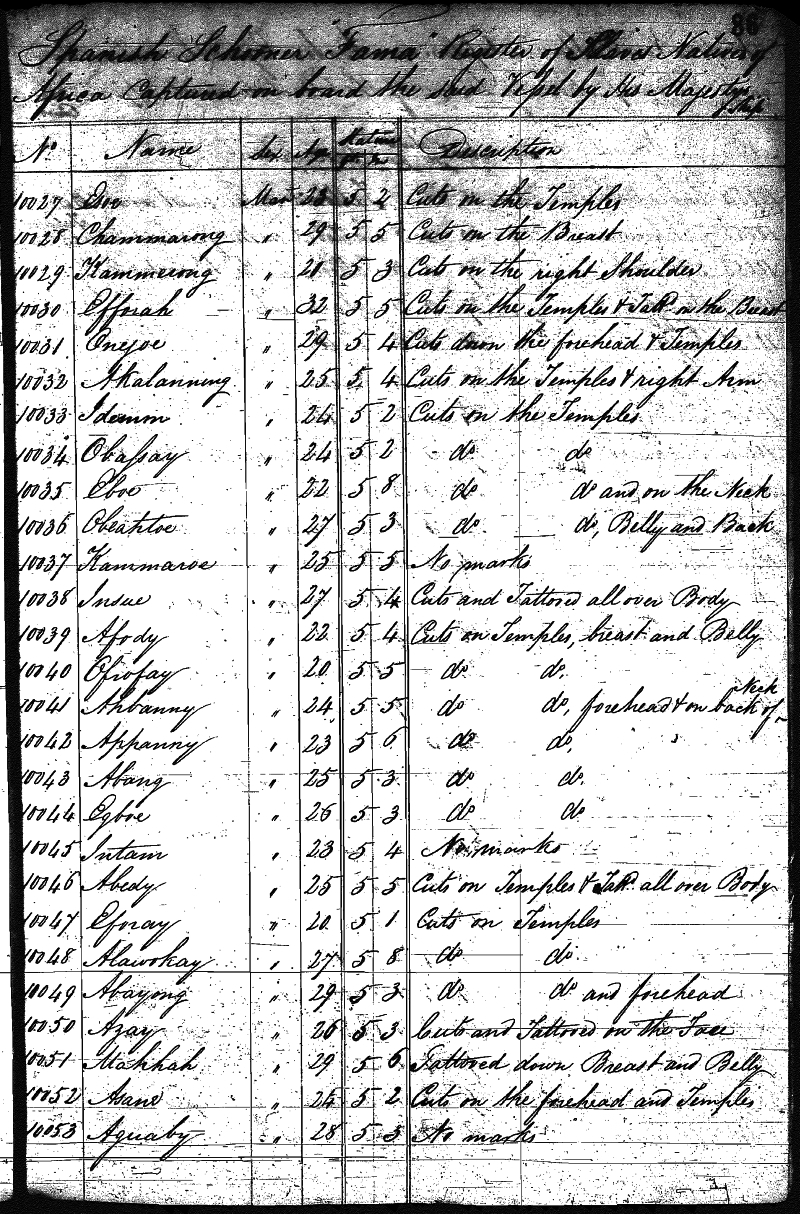 86
Spanish Schooner "Fama" Register of Natives of
Africa Captured on board the said Vessel by His Majestys
Ship
No. Name Sex Age Stature Description
ft In
10027 Eboe Man 23 5 2 Cuts on the Temples
10028 Chammarong " 29 5 5 Cuts on the Breast
10029 Kammerong " 21 5 3 Cuts on the right Shoulder
10030 Efforah " 32 5 5 Cuts on the Temples & Tatd. on the Breast
10031 Onejoe " 29 5 4 Cuts down the forehead & Temples
10032 Akalanning " 25 5 4 Cuts on the Temples & right Arm
10033 Idemm " 24 5 2 Cuts on the Temples
10034 Obassay " 24 5 2 do do
10035 Eboe " 22 5 8 do do and on the Neck
10036 Obeahtoe " 27 5 3 do do, Belly and Back
10037 Kammaroe " 25 5 5 No marks
10038 Insue " 27 5 4 Cuts and Tattoed all over Body
10039 Afody " 22 5 4 Cuts on Temples, breast and Belly
10040 Ofiofay " 20 5 5 do do.
10041 Ahbanny " 24 5 5 do do, forehead & on back of Neck
10042 Appanny " 23 5 6 do do,
10043 Abang " 25 5 3 do do.
10044 Egboe " 26 5 3 do do
10045 Intam " 23 5 4 No marks
10046 Abedy " 25 5 5 Cuts on Temples & Tatd. all over Body
10047 Eforay " 20 5 1 Cuts on Temples
10048 Alawokay " 27 5 8 do do
10049 Abayong " 29 5 3 do do and forehead
10050 Azay " 26 5 3 Cuts and Tattoed on the Face
10051 Mahhah " 29 5 6 Tattoed down Breast and Belly
10052 Asane " 24 5 2 Cuts on the forehead and Temples
10053 Aquaby " 28 5 3 No marks